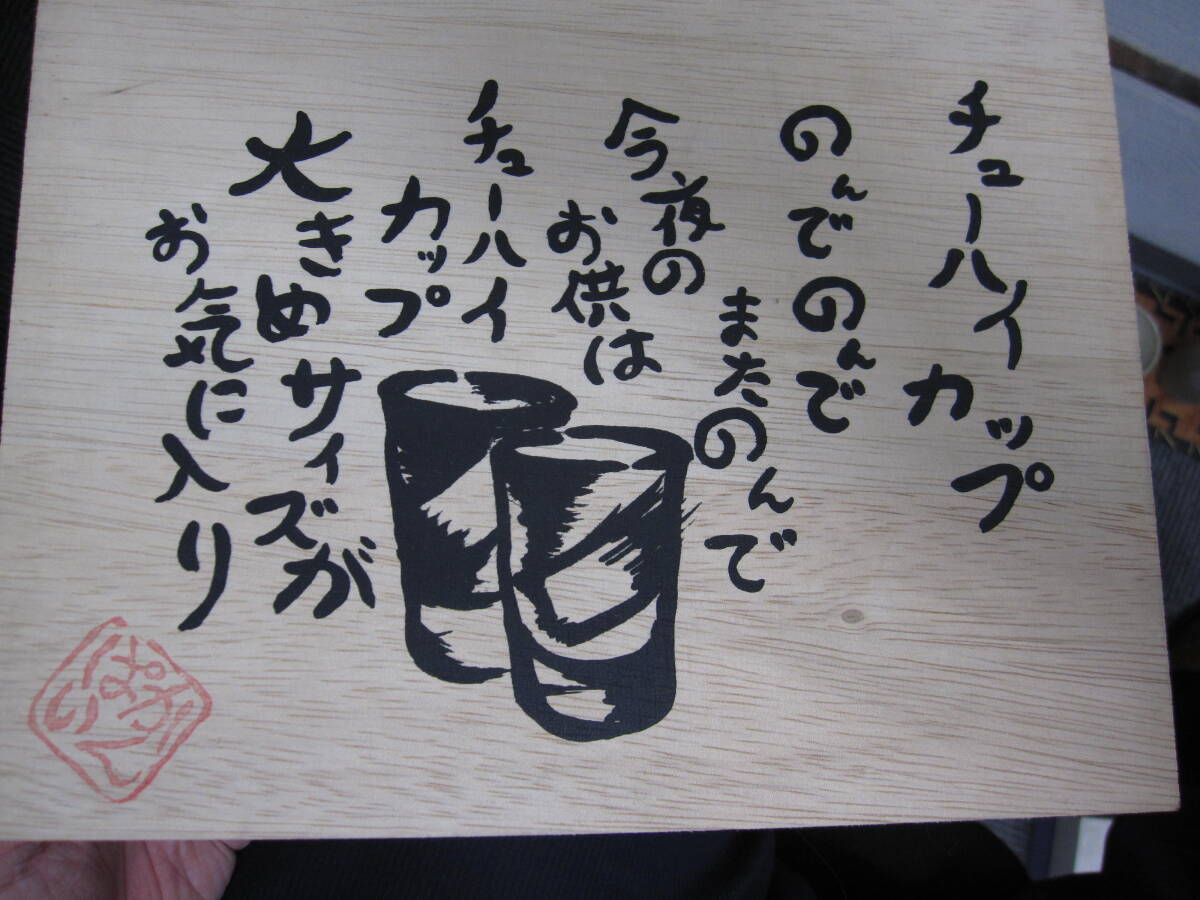 チューハイ
カップ
のんでのんで
またのんで
今夜の
お供は
チューハイ
カップ
大きめサイズが
お気に入り